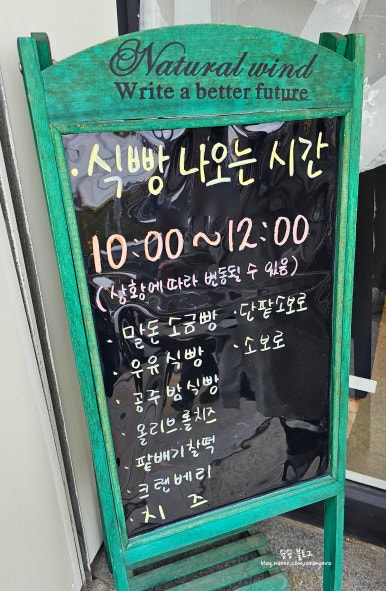 Natural wind
Write a better future
· 식빵 나오는 시간
10:00~12:00
(상황에 따라 변동될 수 있음)
· 말돈 소금빵
· 우유 식빵
· 공주 밤 식빵
· 올리브롤치즈
· 팥배기찰떡
· 크랜베리
· 치즈
· 단팥소보로
· 소보로